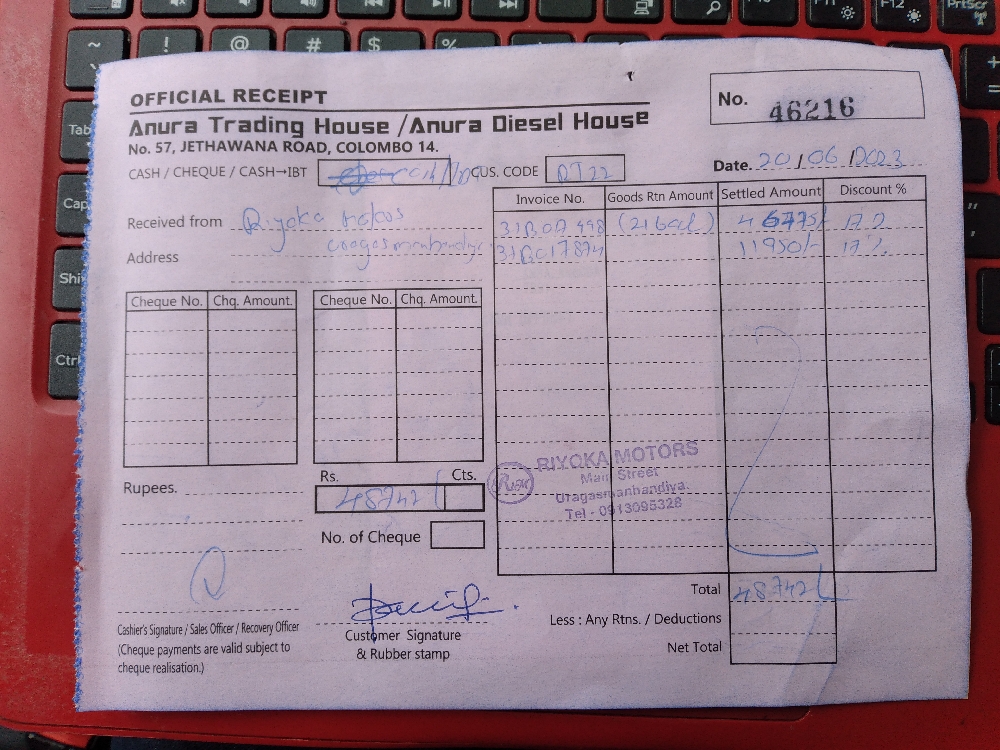 OFFICIAL RECEIPT
No. 46216
Anura Trading House / Anura Diesel House
No. 57, JETHAWANA ROAD, COLOMBO 14.
CASH / CHEQUE / CASH→IBT
CUS. CODE RT22
Date. 20/06/2023
Invoice No. Goods Rtn Amount Settled Amount Discount %
Received from Riyoka
Address
(21 bal)
11950/- 17%
Cheque No. Chq. Amount. Cheque No. Chq. Amount.
RIYOKA MOTORS
Main Street
Uragasmanhandiya.
Tel - 0913095328
Rupees.
Rs. Cts.
48742/
No. of Cheque
Total 48742/
Less : Any Rtns. / Deductions
Net Total
Cashier's Signature / Sales Officer / Recovery Officer
(Cheque payments are valid subject to
cheque realisation.)
Customer Signature
& Rubber stamp
~
!
@
#
$
%
Tab
Cap
Shi
Ctrl
F11
F12
PrtScr